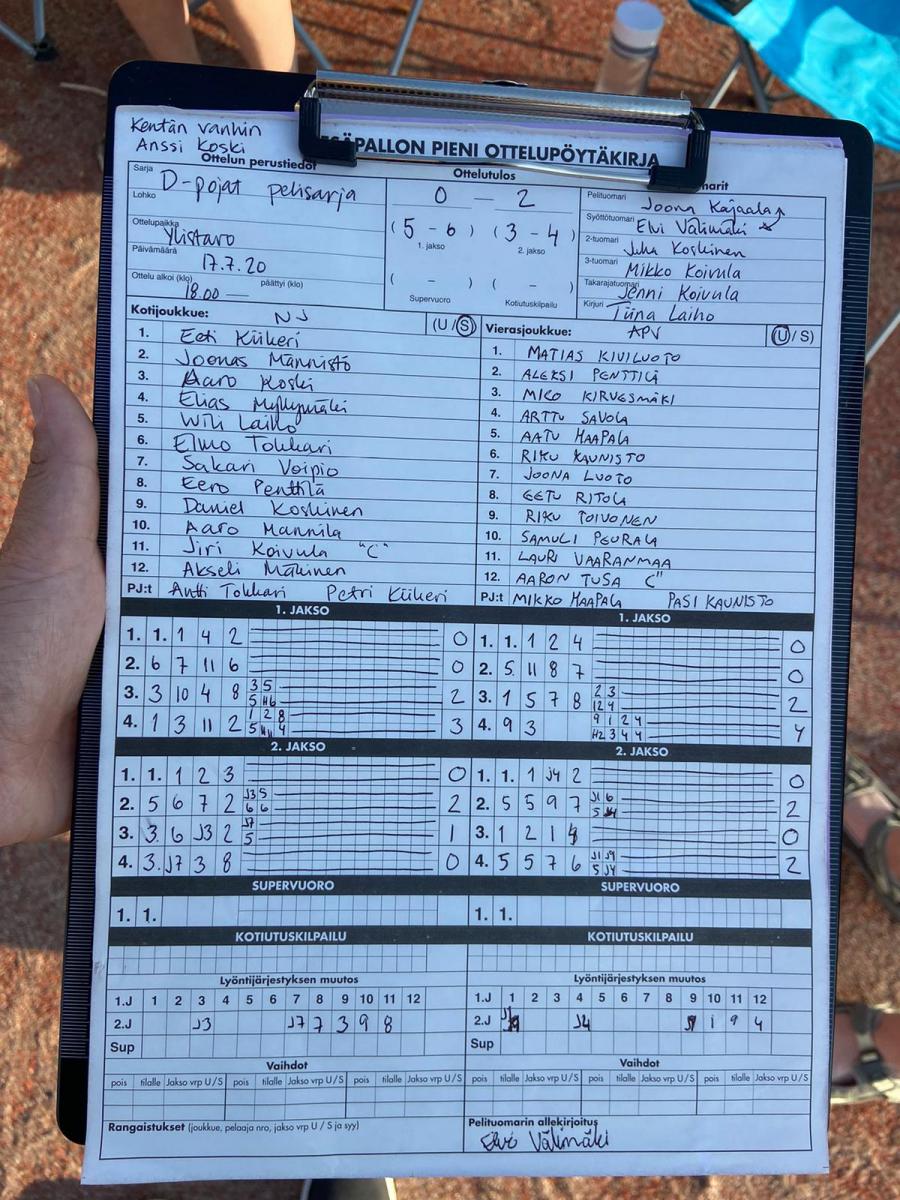 Kentän vanhin
Anssi Koski
PESÄPALLON PIENI OTTELUPÖYTÄKIRJA
Ottelun perustiedot
Sarja D-pojat pelisarja
Lohko
Ottelupaikka Ylistaro
Päivämäärä 17.7.20
Ottelu alkoi (klo) 18.00 — päättyi (klo)
Ottelutulos
0 — 2
(5 - 6) (3 - 4)
1. jakso 2. jakso
( - ) ( - )
Supervuoro Kotiutuskilpailu
marit
Pelituomari Joona Kajaala
Syöttötuomari Elvi Välimäki
2-tuomari Juha Koskinen
3-tuomari Mikko Koivula
Takarajatuomari Jenni Koivula
Kirjuri Tiina Laiho
Kotijoukkue: NJ (U/S)
1. Eeti Kiikeri
2. Joonas Männistö
3. Aaro Koski
4. Elias Myllymäki
5. Wili Laiho
6. Elmo Tokkari
7. Sakari Voipio
8. Eero Penttilä
9. Daniel Koskinen
10. Aaro Mannila
11. Jiri Koivula "C"
12. Akseli Mäkinen
PJ:t Antti Tokkari Petri Kiikeri
Vierasjoukkue: APV (U/S)
1. MATIAS KIVILUOTO
2. ALEKSI PENTTILÄ
3. MIKO KIRVESMÄKI
4. ARTTU SAVOLA
5. AATU HAAPALA
6. RIKU KAUNISTO
7. JOONA LUOTO
8. EETU RITOLA
9. RIKU TOIVONEN
10. SAMULI PEURALA
11. LAURI VAARANMAA
12. AARON TUSA C"
PJ:t MIKKO HAAPALA PASI KAUNISTO
1. JAKSO
1. 1. 1 4 2 0
2. 6 7 11 6 0
3. 3 10 4 8 3 5 2
4. 1 3 11 2 1 2 8 3
1. JAKSO
1. 1. 1 2 4 0
2. 5 11 8 7 0
3. 1 5 7 8 2 3 2
12 4
4. 9 3 9 1 2 4 4
H2 3 4 4
2. JAKSO
1. 1. 1 2 3 0
2. 5 6 7 2 J3 5 2
6 6
3. 3. 6 J3 2 J7 1
5
4. 3. J7 3 8 0
2. JAKSO
1. 1. 1 J4 2 0
2. 5 5 9 7 J1 6 2
5
3. 1 2 1 0
4. 5 5 7 6 J1 J9 2
5 J4
SUPERVUORO
1. 1.
SUPERVUORO
1. 1.
KOTIUTUSKILPAILU
KOTIUTUSKILPAILU
Lyöntijärjestyksen muutos
1.J 1 2 3 4 5 6 7 8 9 10 11 12
2.J J3 J7 7 3 9 8
Sup
Lyöntijärjestyksen muutos
1.J 1 2 3 4 5 6 7 8 9 10 11 12
2.J J4 1 9 4
Sup
Vaihdot
pois tilalle Jakso vrp U/S pois tilalle Jakso vrp U/S pois tilalle Jakso vrp U/S
Vaihdot
pois tilalle Jakso vrp U/S pois tilalle Jakso vrp U/S pois tilalle Jakso vrp U/S
Rangaistukset (joukkue, pelaaja nro, jakso vrp U / S ja syy)
Pelituomarin allekirjoitus
Elvi Välimäki